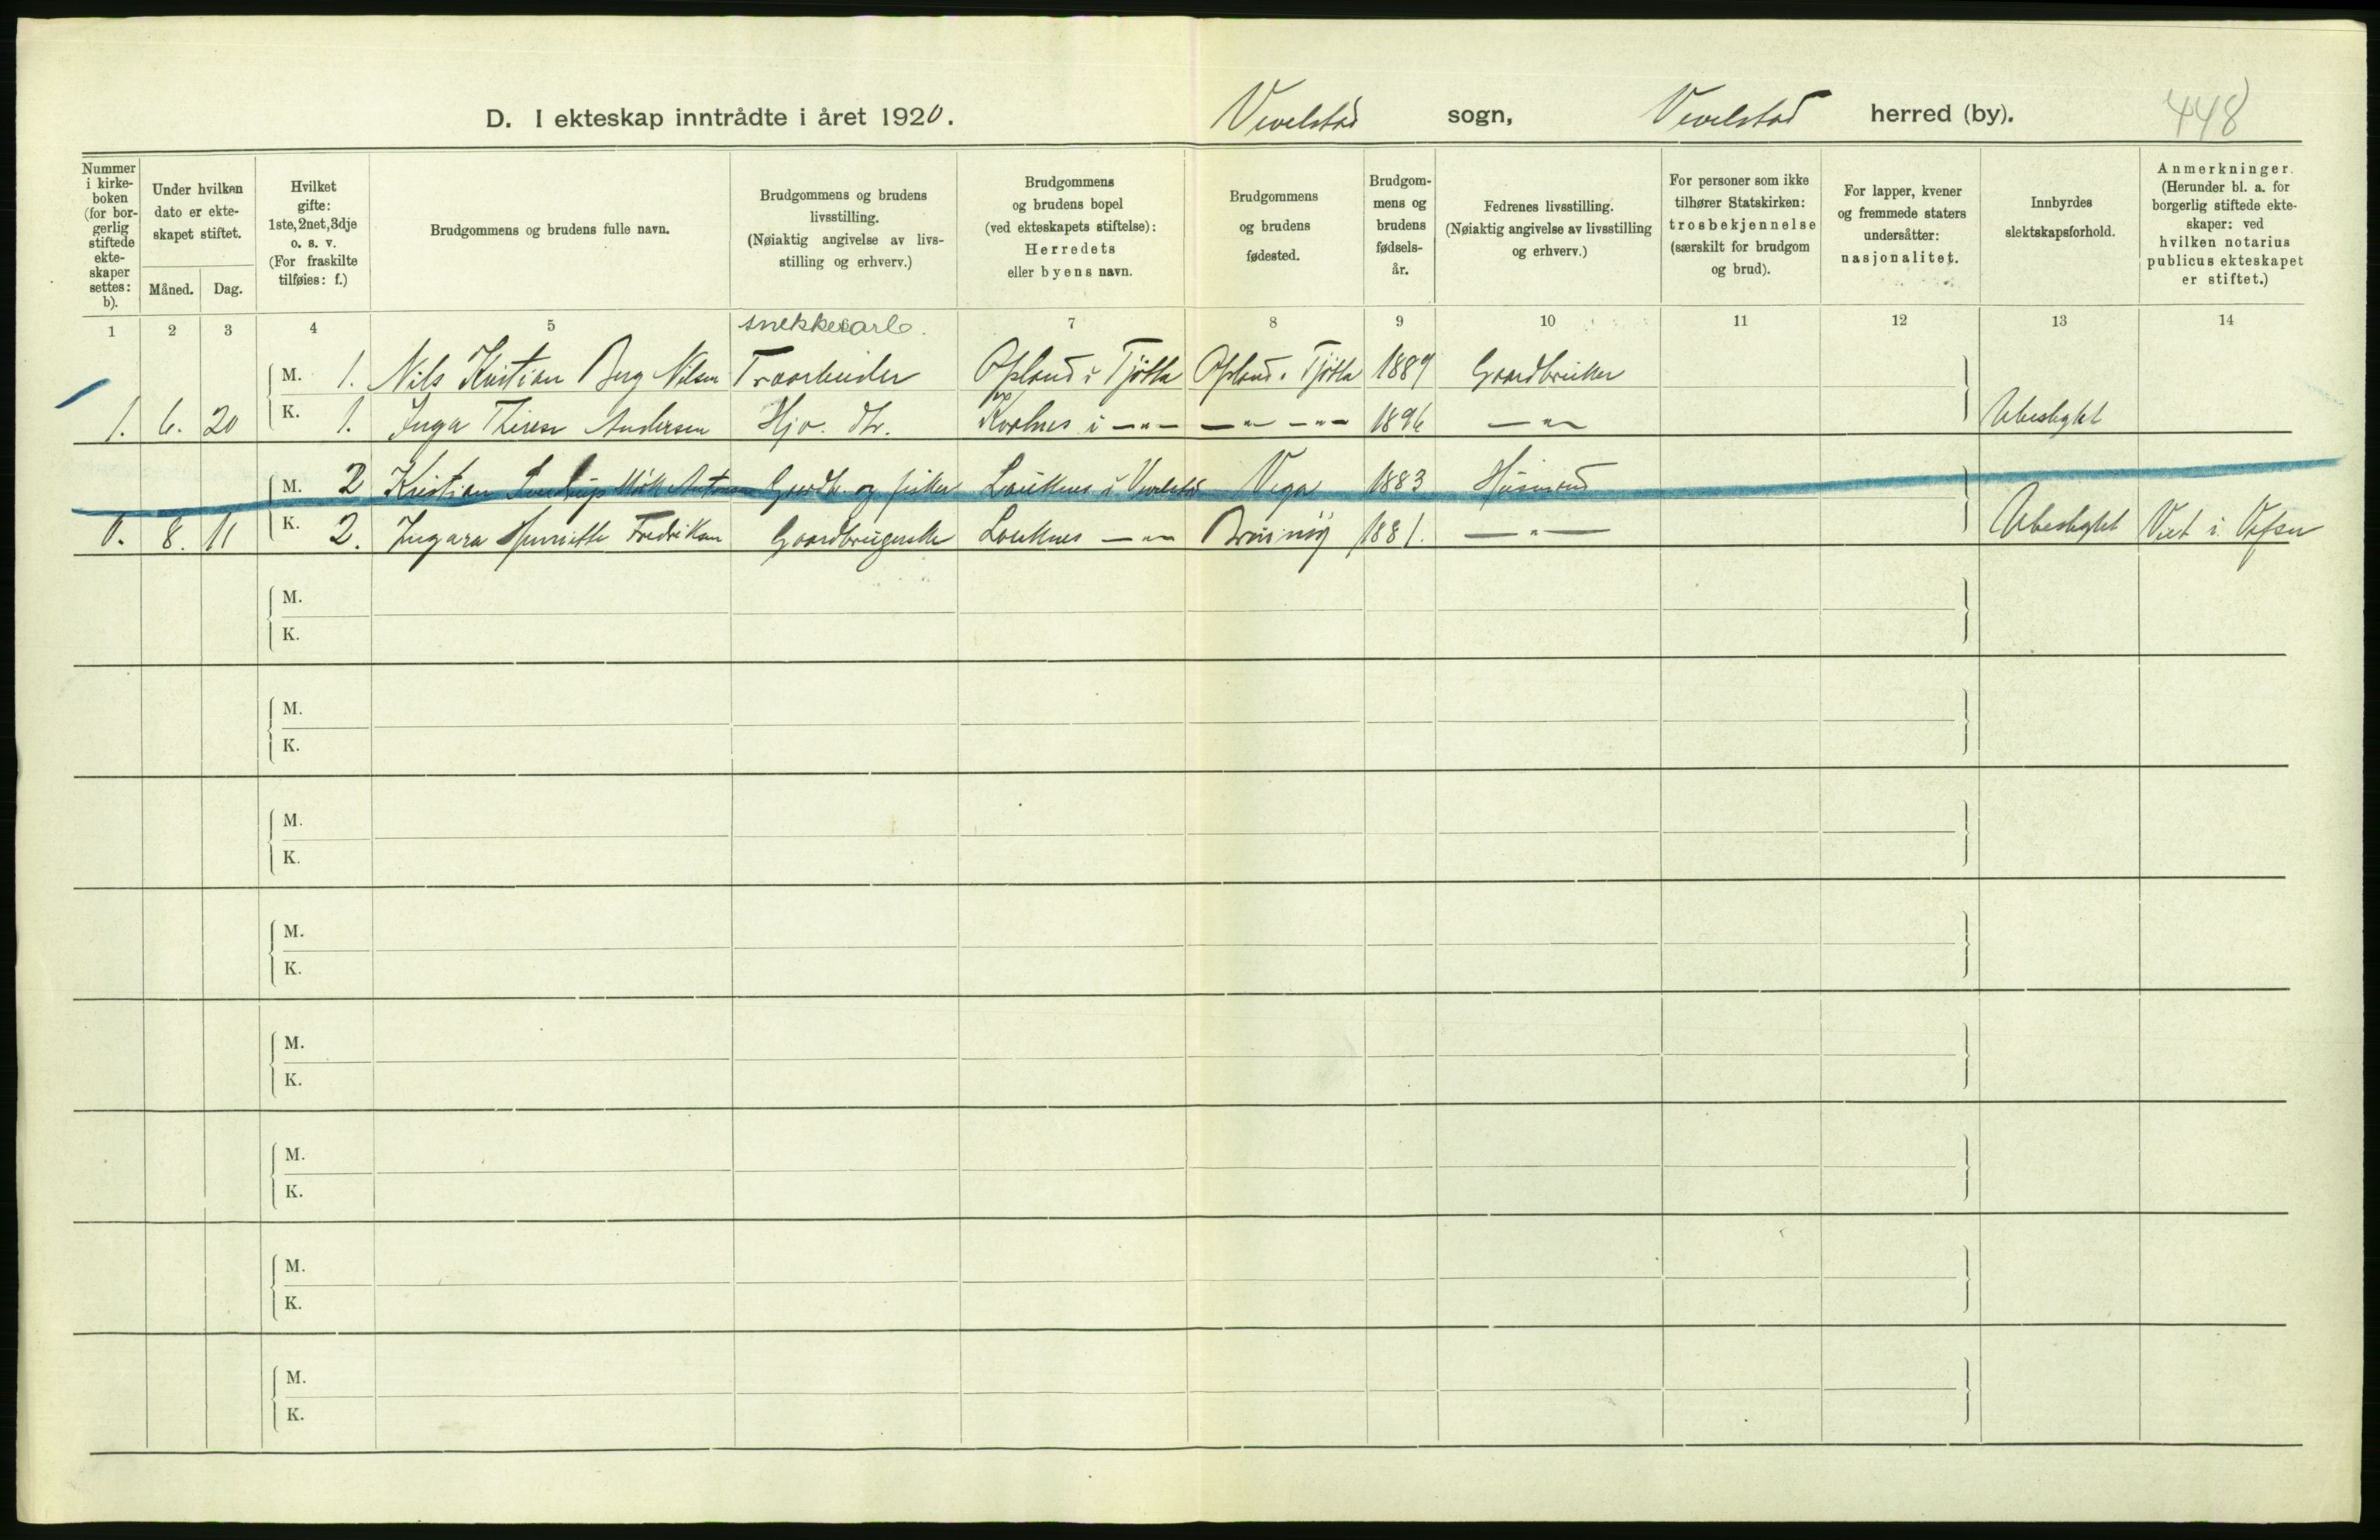 D. I ekteskap inntrådte i året 1920. Vevelstad sogn, Vevelstad herred (by). 448
Nummer i kirkeboken (for borgerlig stiftede ekteskaper settes: b).
Under hvilken dato er ekteskapet stiftet.
Måned. Dag.
Hvilket gifte: 1ste, 2net, 3dje o. s. v. (For fraskilte tilføies: f.)
Brudgommens og brudens fulle navn.
Brudgommens og brudens livsstilling. (Nøiaktig angivelse av livsstilling og erhverv.)
Brudgommens og brudens bopel (ved ekteskapets stiftelse): Herredets eller byens navn.
Brudgommens og brudens fødested.
Brudgommens og brudens fødselsår.
Fedrenes livsstilling. (Nøiaktig angivelse av livsstilling og erhverv.)
For personer som ikke tilhører Statskirken: trosbekjennelse (særskilt for brudgom og brud).
For lapper, kvener og fremmede staters undersåtter: nasjonalitet.
Innbyrdes slektskapsforhold.
Anmerkninger. (Herunder bl. a. for borgerlig stiftede ekteskaper: ved hvilken notarius publicus ekteskapet er stiftet.)
1 2 3 4 5 snekkerarb. 7 8 9 10 11 12 13 14
M. 1. Nils Kristian Berg Nilsen Træarbeider Opland i Tjötta Opland i Tjötta 1889 Gaardbruker
1. 6. 20 K. 1. Inga Therese Andersen Hjv. dtr. i -"- -"- -"- 1896 -"- Ubeslegtet
M. 2 Kristian Antonsen Gaardb. og fisker Lauknes i Vevelstad Vega 1883 Husmand
0. 8. 11 K. 2. Ingara Henriette Fredriksen Gaardbrugerske Lauknes -"- Brønnøy 1881. -"- Ubeslegtet Viet i Vefsn
M.
K.
M.
K.
M.
K.
M.
K.
M.
K.
M.
K.
M.
K.
M.
K.